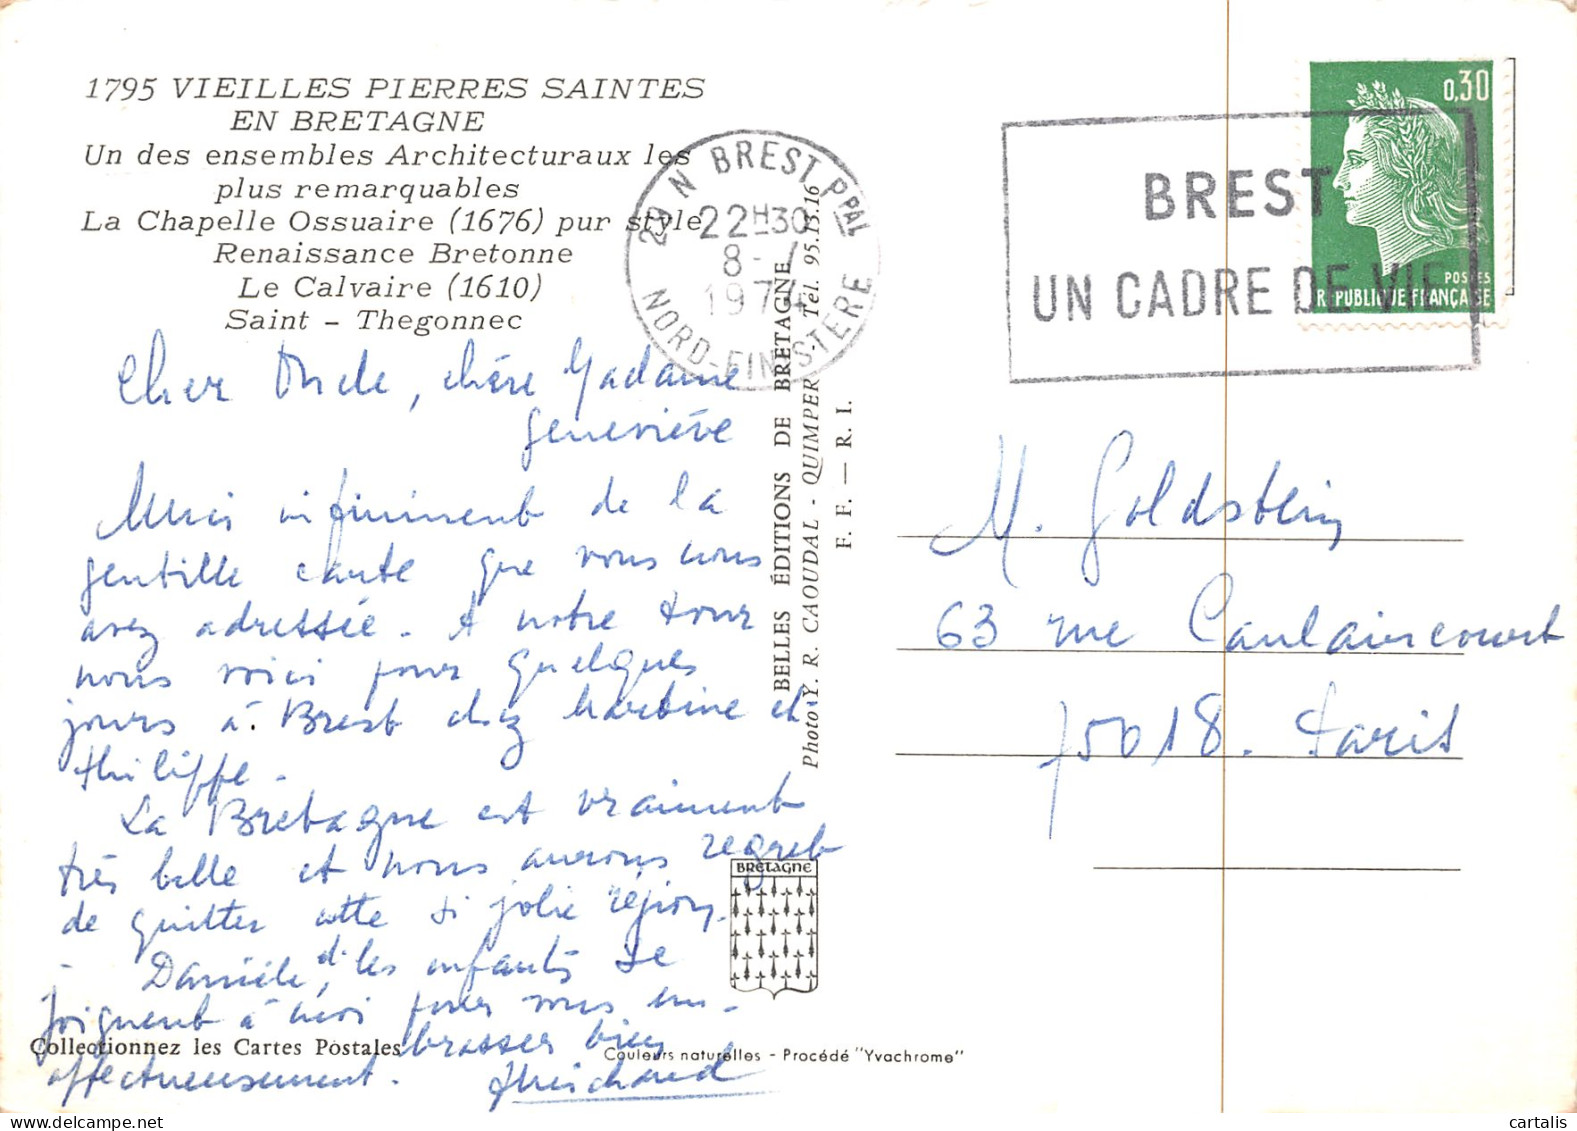 1795 VIEILLES PIERRES SAINTES
EN BRETAGNE
Un des ensembles Architecturaux les
plus remarquables
La Chapelle Ossuaire (1676) pur style
Renaissance Bretonne
Le Calvaire (1610)
Saint - Thegonnec
29 N BREST PPAL
22H30
8-
1974
NORD-FINISTERE
BREST
UN CADRE DE VIE
0,30
POSTES
REPUBLIQUE FRANÇAISE
Cher Oncle, chère Madame
Geneviève
Merci infiniment de la
gentille carte que vous nous
avez adressée. A notre tour
nous voici pour quelques
jours à Brest chez Martine et
Philippe.
La Bretagne est vraiment
très belle et nous aurons regret
de quitter cette si jolie région.
- Danièle, et les enfants se
joignent à moi pour vous em-
brasser bien
affectueusement.
BELLES ÉDITIONS DE BRETAGNE
Photo Y. R. CAOUDAL - QUIMPER - Tél. 95.13.16
F. F. — R. I.
M. Goldstein
63 rue Caulaincourt
75018. Paris
BRETAGNE
Collectionnez les Cartes Postales
Couleurs naturelles - Procédé "Yvachrome"
www.delcampe.net
cartalis